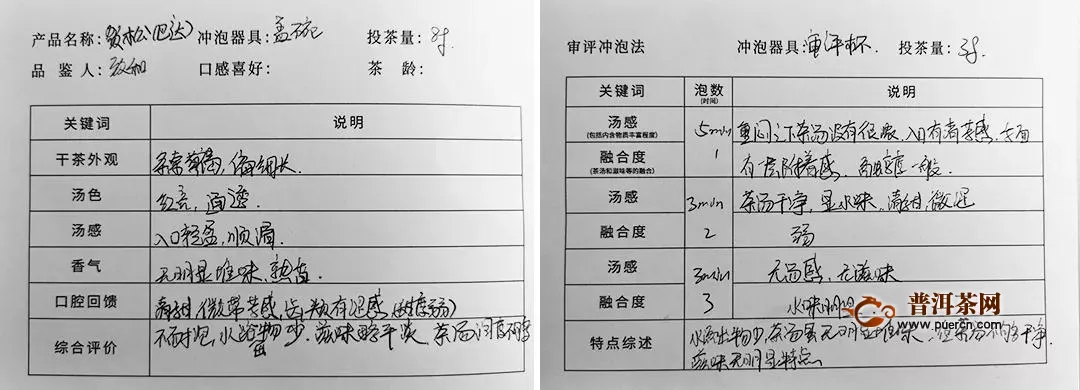 产品名称: 贺松(巴达) 冲泡器具: 盖碗 投茶量: 8g.
品 鉴 人: 口感喜好: 茶 龄:
关键词 说明
干茶外观 条索 偏细长.
汤色 红亮, 通透.
汤感 入口轻盈, 顺滑.
香气 无明显堆味, 熟香.
口腔回馈 清甜, 微带苦感, 有涩感(甜度弱)
综合评价 不耐泡, 水浸出物少. 滋味略平淡, 茶汤
审评冲泡法 冲泡器具: 审评杯. 投茶量: 3g.
关键词 泡数 (时间) 说明
汤感 (包括内含物质丰富程度) 5min 重闷之下茶汤没有很浓, 入口有着苦感, 舌面
融合度 (茶汤和滋味等的融合) 1 有 附着感. 一般.
汤感 3min 茶汤干净, 显水味, 清甜, 微涩
融合度 2 弱
汤感 3min 无汤感, 无滋味
融合度 3 水味明显
特点综述 水浸出物少, 茶汤虽无明显堆味, 但茶汤不够干净.
滋味无明显特点.
普洱茶网
www.puercn.com